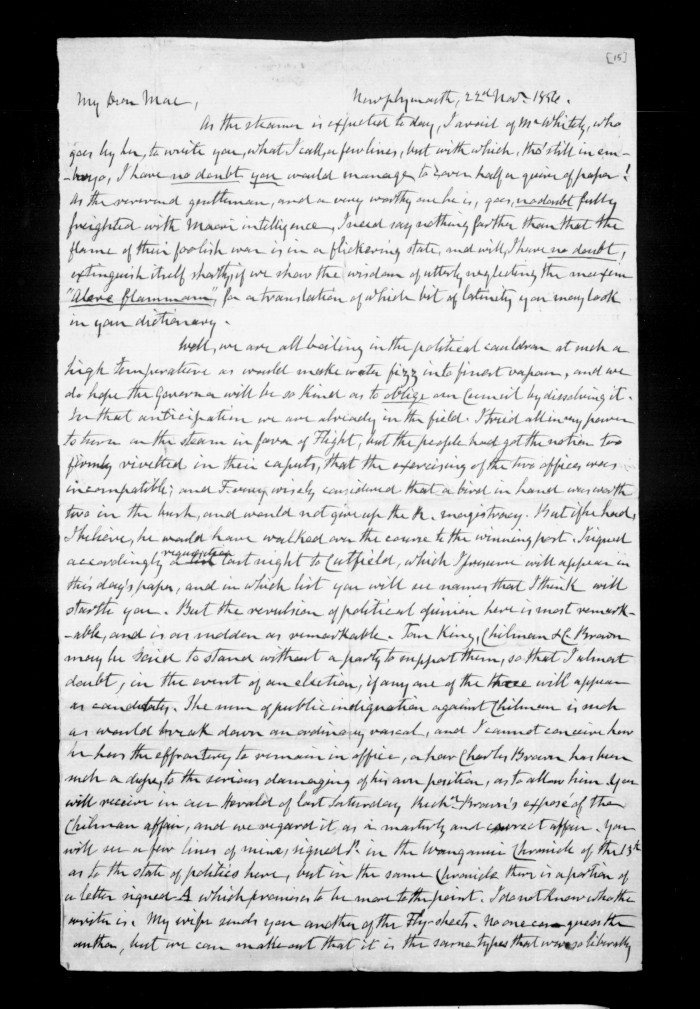 [15]
My Dear Mac, Newplymouth, 22nd Novr. 1856.
As the steamer is expected to day, I avail of Mr Whitely, who
goes by her, to write you, what I call, a few lines, but with which, tho' still in em-
-bryo, I have no doubt you would manage to cover half a quire of paper!
As the reverend gentleman, and a very worthy one he is, goes, no doubt fully
freighted with Maori intelligence, I need say nothing farther than that the
flame of their foolish war is in a flickering state, and will, I have no doubt,
extinguish itself shortly, if we show the wisdom of utterly neglecting the maxim
"Alere flammam", for a translation of which bit of latinity you may look
in your dictionary.
Well, we are all boiling in the political cauldron at such a
high temperature as would make water fizz into finest vapour, and we
do hope the Governor will be so kind as to oblige our Council by dissolving it.
In that anticipation we are already in the field. I tried all in my power
to turn on the steam in favor of Flight, but the people had got the notion too
firmly rivetted in their caputs, that the exercising of the two offices was
incompatible; and F. very wisely considered that a bird in hand was worth
two in the bush, and would not give up the R. magistracy. But if he had,
I believe, he would have walked over the course to the winning post. I signed
accordingly a requisition last night to Cutfield, which I presume will appear in
this day's paper, and in which list you will see names that I think will
startle you. But the revulsion of political opinion here is most remark-
-able, and is as sudden as remarkable. Tom King, Chilman & C. Brown
may be said to stand without a party to support them, so that I almost
doubt, in the event of an election, if any one of the three will appear
as candidates. The sum of public indignation against Chilman is such
as would break down an ordinary rascal, and I cannot conceive how
he has the effrontery to remain in office, or how Charles Brown has been
such a dupe, to the serious damaging of his own position, as to allow him. You
will receive in our Herald of last Saturday Richd. Brown's exposé of the
Chilman affair, and we regard it as a masterly and correct affair. You
will see a few lines of mine, signed P. in the Wanganui Chronicle of the 13th
as to the state of politics here, but in the same Chronicle there is a portion of
a letter signed A which promises to be more to the point. I do not know who the
writer is. My wife sends you another of the Fly-sheets. No one can guess the
author, but we can make out that it is the same types that were so liberally